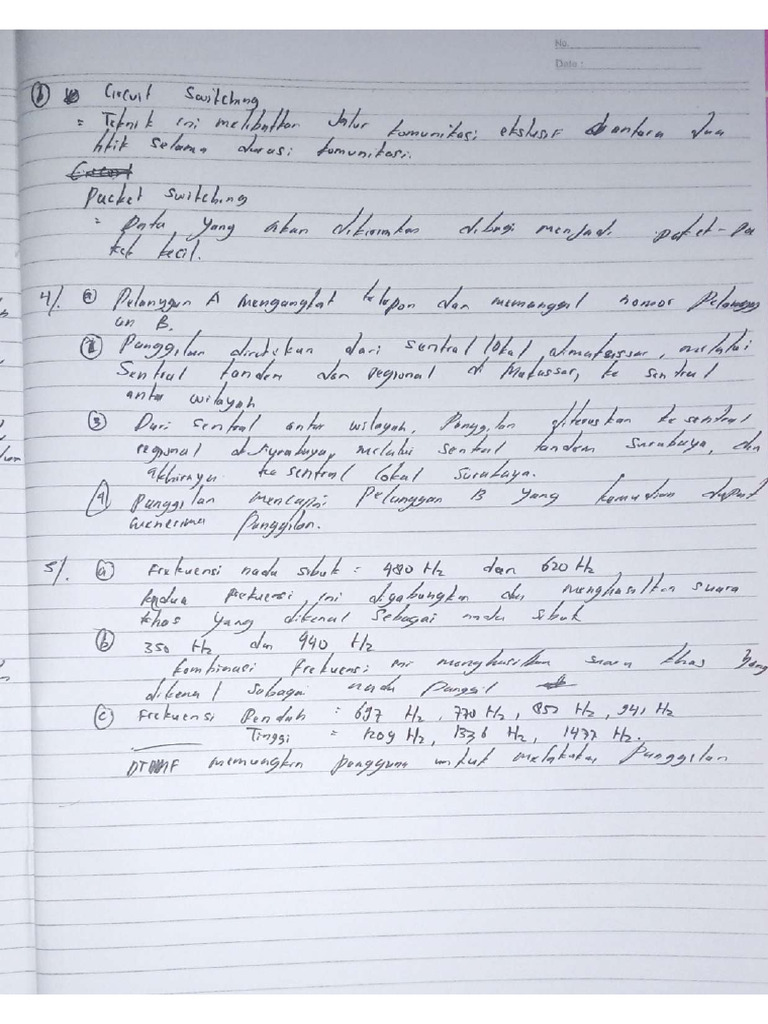 No.
Date :
b Circuit Switching
= Teknik ini melibatkan Jalur komunikasi ekslusif diantara dua
titik selama durasi komunikasi.
Packet Switching
= Data yang akan dikirimkan dibagi menjadi paket-pa
ket kecil.
4/. a Pelanggan A mengangkat telepon dan memanggil nomor Pelangg
an B.
2 Panggilan diruteskan dari sentral lokal dimakassar, melalui
Sentral tandem dan regional di Makassar, ke sentral
antar wilayah
3 Dari sentral antar wilayah, Panggilan diteruskan ke sentral
regional di Surabaya, melalui sentral tandem Surabaya, dan
akhirnya ke sentral lokal Surabaya.
4 Panggilan mencapai Pelanggan B yang kemudian dapat
menerima Panggilan.
5/. a Frekuensi nada sibuk = 480 Hz dan 620 Hz
kedua frekuensi ini digabungkan dan menghasilkan suara
khas yang dikenal sebagai nada sibuk
b 350 Hz dan 440 Hz
kombinasi frekuensi ini menghasilkan suara khas yang
dikenal sebagai nada Panggil
c Frekuensi Rendah = 697 Hz, 770 Hz, 852 Hz, 941 Hz
Tinggi = 1209 Hz, 1336 Hz, 1477 Hz.
DTMF memungkin pengguna untuk melakukan Panggilan